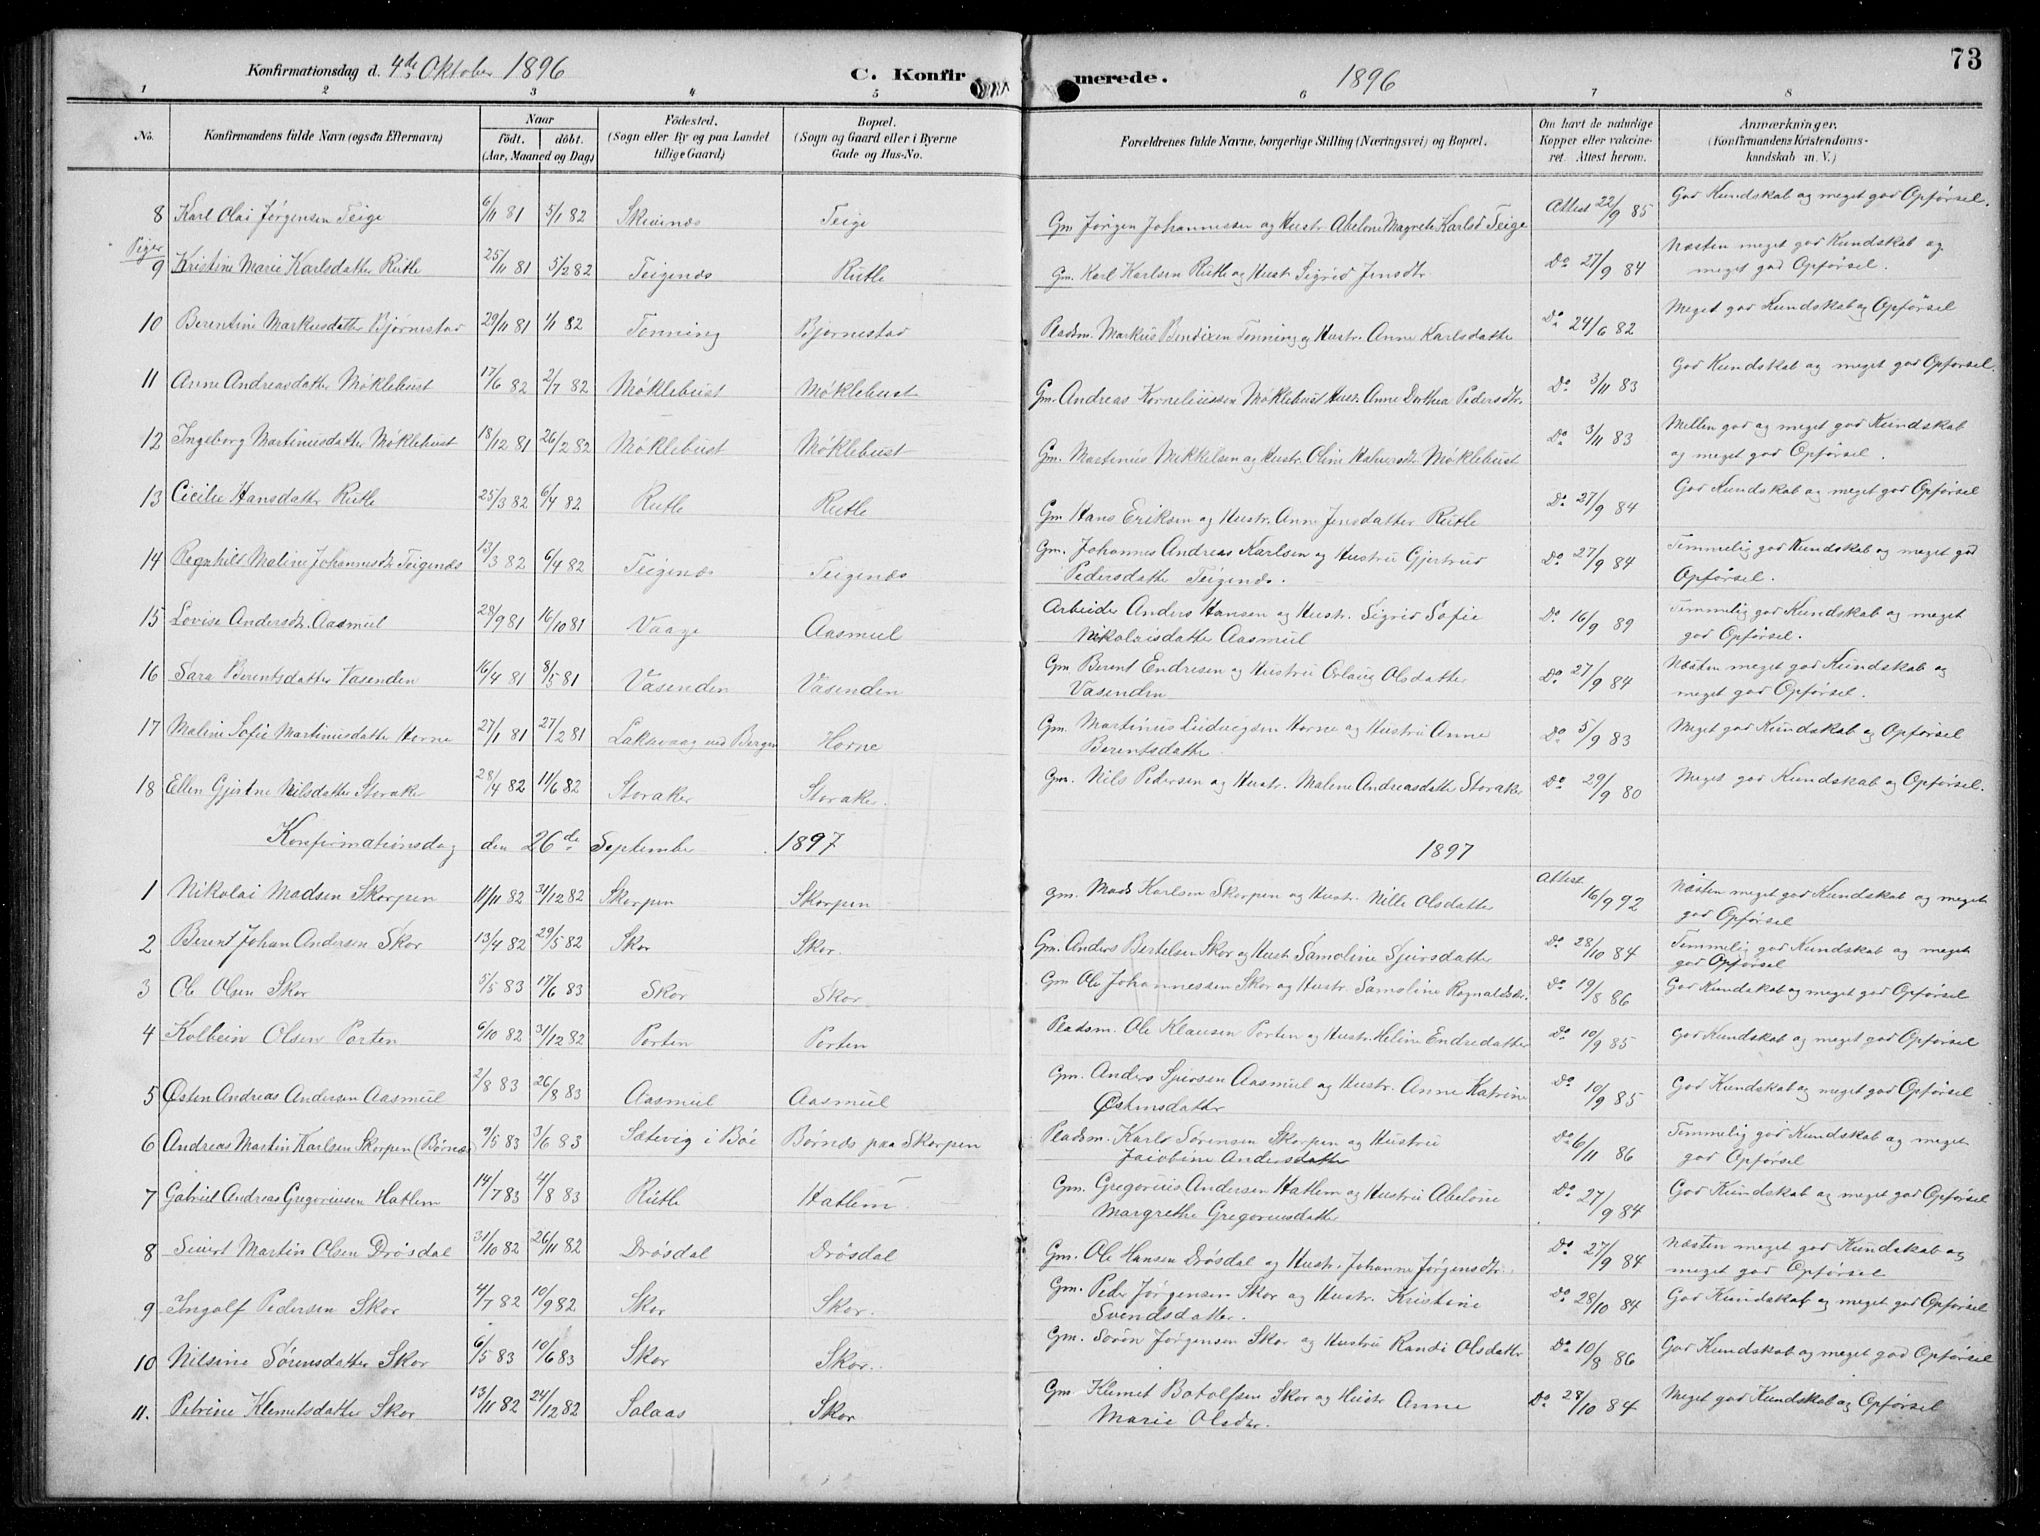 73
Konfirmationsdag d. 4de Oktober 1896 C. Konfirmerede. 1896
1 2 3 4 5 6 7 8
No. Konfirmandens fulde Navn (ogsaa Efternavn) Naar födt. döbt. (Aar, Maaned og Dag) Födested. (Sogn eller By og paa Landet tillige Gaard) Bopæl. (Sogn og Gaard eller i Byerne Gade og Hus-No. Forældrenes fulde Navne, borgerlige Stilling (Næringsvei) og Bopæl. Om havt de naturlige Kopper eller vakcineret. Attest herom. Anmærkninger. (Konfirmandens Kristendomskundskab m. V.)
8 Karl Olai Jørgensen Teige 6/11 81 5/1 82 Skivenæs Teige Gm Jørgen Johannessen og Hustr. Abelone Magrete Karlsd Teige Attest 22/9 85 God Kundskab og meget god Opførsel.
Piger
9 Kristine Marie Karlsdatter Rutle 25/11 81 5/2 82 Teigenæs Rutle Gm. Karl Karlsen Rutle og Hust. Sigrid Jensdtr Do 27/9 84 Næsten meget god Kundskab og
meget god Opførsel.
10 Berentine Markusdatter Bjørnestad 29/11 81 1/1 82 Tønning Bjørnestad Pladsm. Markus Bendixen Tønning og Hustr. Anne Karlsdatter Do 24/6 82 Meget god Kundskab og Opførsel
11 Anne Andreasdatter Møklebust 17/6 82 2/7 82 Møklebust Møklebust Gm. Andreas Korneliussen Møklebust Hustr. Anne Dorthea Pedersdtr. Do 3/11 83 God Kundskab og meget god Opførsel.
12 Ingeborg Martinusdatter Møklebust 18/12 81 26/2 82 Møklebust Møklebust Gm. Martinus Mikkelsen og Hustr. Oline Halvorsdtr Møklebust Do 3/11 83 Mellen god og meget god Kundskab
og meget god Opførsel.
13 Cicilie Hansdatter Rutle 25/3 82 6/4 82 Rutle Rutle Gm Hans Eriksen og Hustr. Anne Jensdatter Rutle Do 27/9 84 God Kundskab og meget god Opførsel
14 Ragnhild Maline Johannesdtr Teigenæs 13/3 82 6/4 82 Teigenæs Teigenæs Gm. Johannes Andreas Karlsen og Hustru Gjertrud
Pedersdatter Teigenæs. Do 27/9 84 Temmelig god Kundskab og meget god
Opførsel.
15 Lovise Andersdtr. Aasmul 28/9 81 16/10 81 Vaage Aasmul Arbeider Anders Hansen og Hustr. Sigrid Sofie
Nikolaisdatter Aasmul Do 16/9 89 Temmelig god Kundskab og meget
god Opførsel.
16 Sara Berentsdatter Vasenden 16/4 81 8/5 81 Vasenden Vasenden Gm Berent Endresen og Hustru Orlaug Olsdatter
Vasenden Do 27/9 84 Næsten meget god Kundskab og
meget god Opførsel.
17 Maline Sofie Martinusdatter Horne 27/1 81 27/2 81 Laksevaag ved Bergen Horne Gm. Martinus Ludvigsen Horne og Hustru Anne
Berentsdatter. Do 5/9 83 Meget god Kundskab og Opførsel
18 Ellen Gjertine Nilsdatter Storaker 28/4 82 11/6 82 Storaker Storaker. Gm. Nils Pedersen og Hustr. Malene Andreasdatter Storaker Do 29/9 80 Meget god Kundskab og Opførsel.
Konfirmationsdag den 26de September 1897 1897
1 Nikolai Madsen Skorpen 11/11 82 31/12 82 Skorpen Skorpen gm. Mads Karlsen Skorpen og Hustr. Nille Olsdatter Attest 16/9 92 Næsten meget god Kundskab og meget
god Opførsel
2 Berent Johan Andersen Skor 13/4 82 29/5 82 Skor Skor. Gm. Anders Bertelsen Skor og Hustr Samoline Sjursdatter Do 28/10 84 Temmelig god Kundskab og meget
god Opførsel
3 Ole Olsen Skor 5/5 83 17/6 83 Skor Skor Gm Ole Johannessen Skor og Hustr. Samoline Ragnaldsdtr. Do 19/8 86 God Kundskab og meget god Opførsel
4 Kolbein Olsen Porten 6/10 82 31/12 82 Porten Porten Pladsm. Ole Klausen Porten og Hustr. Heline Endredatter Do 10/9 85 God Kundskab og meget god Opførsel
5 Østen Andreas Andersen Aasmul 2/8 83 26/8 83 Aasmul Aasmul Gm. Anders Sjursen Aasmul og Hustr. Anne Katrine
Østensdatter Do 10/9 85 God Kundskab og meget god Opførsel
6 Andreas Martin Karlsen Skorpen (Børnæs) 9/5 83 3/6 83 Sætevig i Bøe Børnæs paa Skorpen Pladsm. Karl Sørensen Skorpen og Hustru
Jaiobine Andersdatter Do 6/11 86 Temmelig god Kundskab og meget
god Opførsel
7 Gabriel Andreas Gregoriusen Hatlem 14/7 83 4/8 83 Rutle Hatlem Gm. Gregorius Andersen Hatlem og Hustru Abelone
Margrethe Gregoriusdatter Do 27/9 84 God Kundskab og meget god Opførsel
8 Sivert Martin Olsen Drøsdal 31/10 82 26/11 82 Drøsdal Drøsdal Gm. Ole Hansen Drøsdal og Hustr. Johanne Jørgensdtr. Do 27/9 84 Næsten meget god Kundskab og
meget god Opførsel
9 Ingolf Pedersen Skor 4/7 82 10/9 82 Skor Skor. Gm. Peder Jørgensen Skor og Hustr. Kristine
Svendsdatter. Do 28/10 84 God Kundskab og meget god Opførsel
10 Nilsine Sørensdatter Skor 6/5 83 10/6 83 Skor Skor. Gm. Søren Jørgensen Skor og Hustru Randi Olsdattr Do 10/8 86 God Kundskab og meget god Opførsel
11. Petrine Klemetsdatter Skor 13/11 82 24/12 82 Salaas Skor Gm. Klemet Botolfsen Skor og Hustr Anne
Marie Olsdtr. Do 28/10 84 Meget god Kundskab og Opførsel